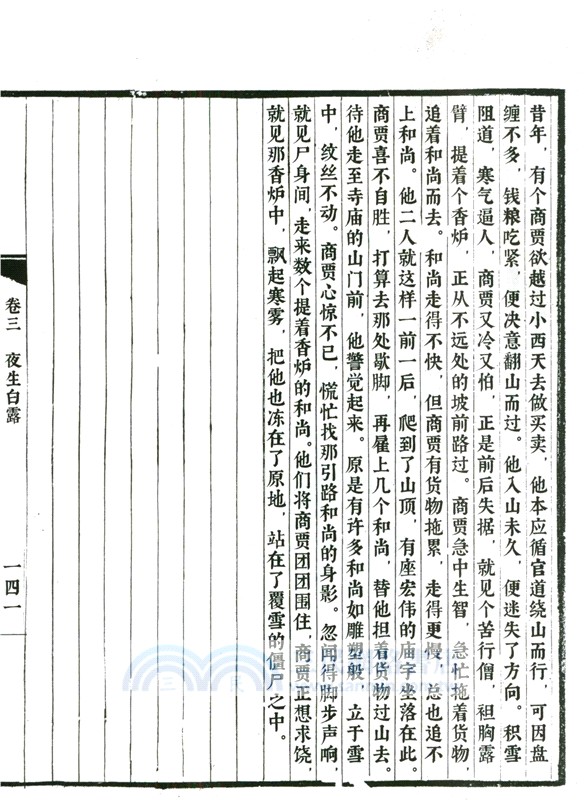 昔年，有个商贾欲越过小西天去做买卖，他本应循官道绕山而行，可因盘
缠不多，钱粮吃紧，便决意翻山而过。他入山未久，便迷失了方向。积雪
阻道，寒气逼人，商贾又冷又怕，正是前后失据，就见个苦行僧，袒胸露
臂，提着个香炉，正从不远处的坡前路过。商贾急中生智，急忙拖着货物，
追着和尚而去。和尚走得不快，但商贾有货物拖累，走得更慢，总也追不
上和尚。他二人就这样一前一后，爬到了山顶，有座宏伟的庙宇坐落在此。
商贾喜不自胜，打算去那处歇脚，再雇上几个和尚，替他担着货物过山去。
待他走至寺庙的山门前，他警觉起来。原是有许多和尚如雕塑般，立于雪
中，纹丝不动。商贾心惊不已，慌忙找那引路和尚的身影。忽闻得脚步声响，
就见尸身间，走来数个提着香炉的和尚。他们将商贾团团围住，商贾正想求饶，
就见那香炉中，飘起寒雾，把他也冻在了原地，站在了覆雪的僵尸之中。
卷三 夜生白露
一四一